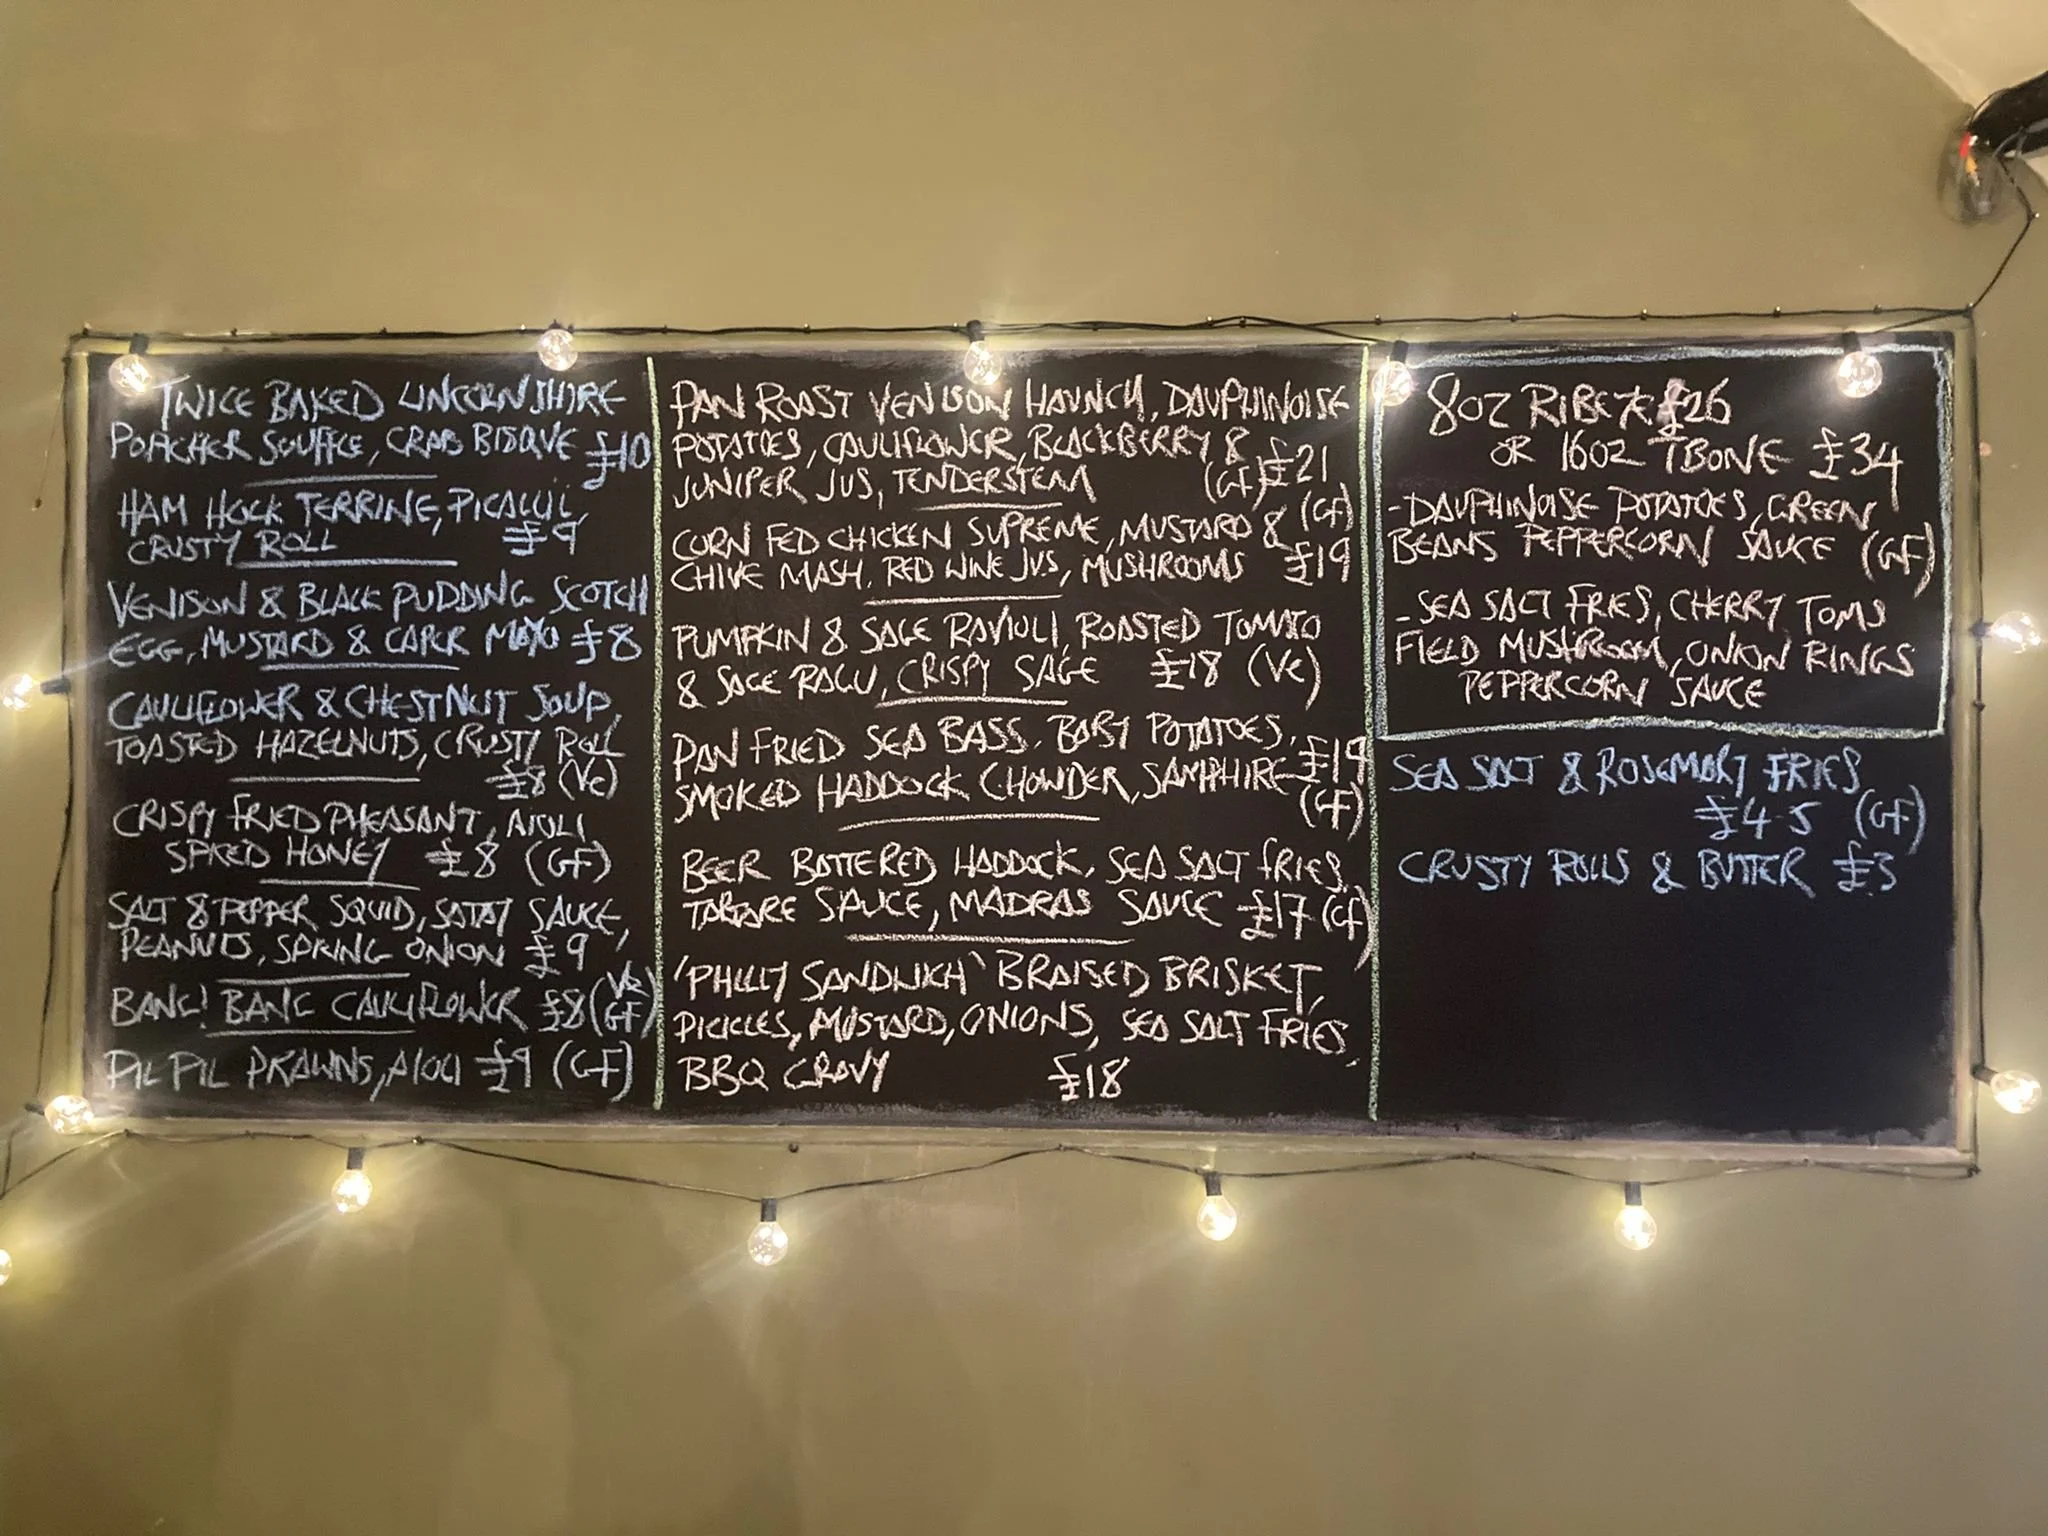 TWICE BAKED LINCOLNSHIRE
POACHER SOUFFLE, CRAB BISQUE £10
HAM HOCK TERRINE, PICALILLI,
CRUSTY ROLL £9
VENISON & BLACK PUDDING SCOTCH
EGG, MUSTARD & CAPER MAYO £8
CAULIFLOWER & CHESTNUT SOUP,
TOASTED HAZELNUTS, CRUSTY ROLL
£8 (Ve)
CRISPY FRIED PHEASANT, AIOLI,
SPICED HONEY £8 (GF)
SALT & PEPPER SQUID, SATAY SAUCE,
PEANUTS, SPRING ONION £9
BANG! BANG CAULIFLOWER £8 (Ve GF)
PIL PIL PRAWNS, AIOLI £9 (GF)
PAN ROAST VENISON HAUNCH, DAUPHINOISE
POTATOES, CAULIFLOWER, BLACKBERRY &
JUNIPER JUS, TENDERSTEM (GF) £21
CORN FED CHICKEN SUPREME, MUSTARD & (GF)
CHIVE MASH, RED WINE JUS, MUSHROOMS £19
PUMPKIN & SAGE RAVIOLI, ROASTED TOMATO
& SAGE RAGU, CRISPY SAGE £18 (Ve)
PAN FRIED SEA BASS, BABY POTATOES, £19
SMOKED HADDOCK CHOWDER, SAMPHIRE (GF)
BEER BATTERED HADDOCK, SEA SALT FRIES,
TARTARE SAUCE, MADRAS SAUCE £17 (GF)
'PHILLY SANDWICH' BRAISED BRISKET,
PICKLES, MUSTARD, ONIONS, SEA SALT FRIES,
BBQ GRAVY £18
8OZ RIBEYE £26
OR 16OZ TBONE £34
-DAUPHINOISE POTATOES, GREEN
BEANS PEPPERCORN SAUCE (GF)
-SEA SALT FRIES, CHERRY TOMS
FIELD MUSHROOM, ONION RINGS
PEPPERCORN SAUCE
SEA SALT & ROSEMARY FRIES
£4.5 (GF)
CRUSTY ROLLS & BUTTER £3